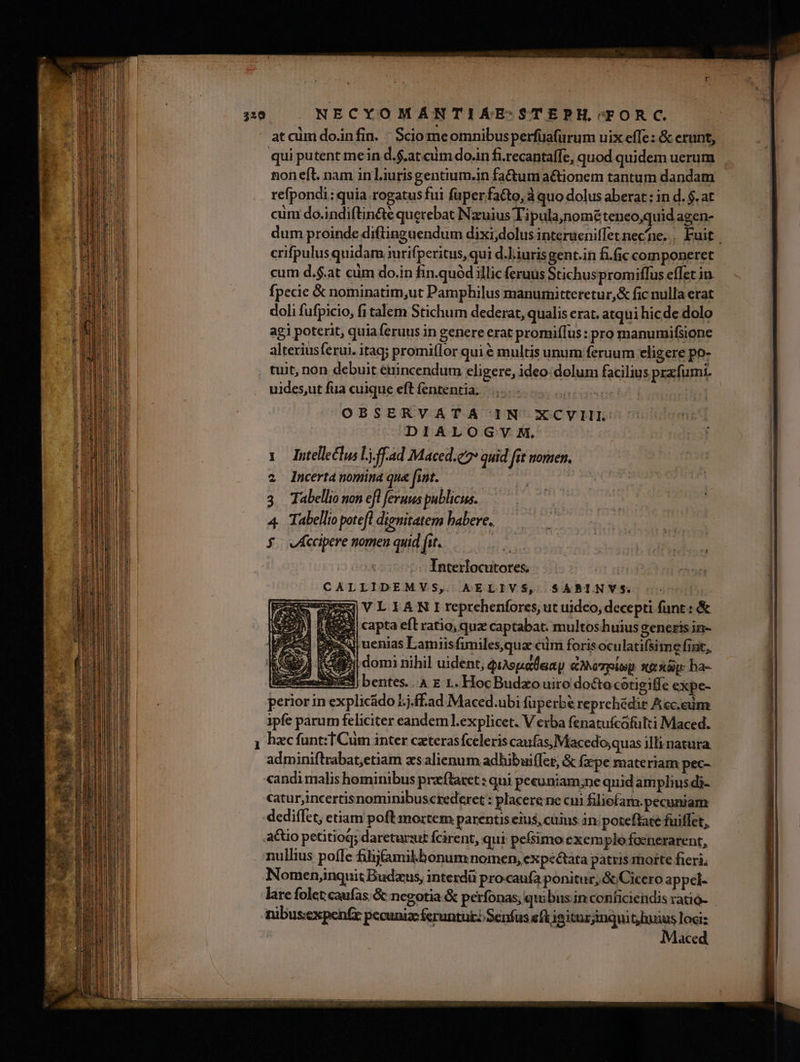 320 NECYOMANTIAE STEPH. FORC.
at cùm do. in fin. Scio me omnibus perſuaſurum uix eſſe: & erunt,
qui putent me in d.§.at cùm do.in fi.recantaſſe, quod quidem uerum
non eſt. nam in l.iuris gentium.in factum actionem tantum dandam
reſpondi: quia rogatus fui ſuper facto, à quo dolus aberat: in d. §. at
cùm do.indiſtinctè quęrebat Næuius Tipula, nomẽ teneo, quid agen-
dum proinde diſtinguendum dixi, dolus interueniſſet nec'ne. Fuit
criſpulus quidam iuriſperitus, qui d.l.iuris gent.in fi.ſic componeret
cum d.§.at cùm do.in fin.quòd illic ſeruus Stichus promiſſus eſſet in
ſpecie & nominatim, ut Pamphilus manumitteretur, & ſic nulla erat
doli ſuſpicio, ſi talem Stichum dederat, qualis erat. atqui hic de dolo
agi poterit, quia ſeruus in genere erat promiſſus: pro manumiſsione
alterius ſerui. itaq; promiſſor qui è multis unum ſeruum eligere po-
tuit, non debuit euincendum eligere, ideo dolum facilius præſumi.
uides, ut ſua cuique eſt ſententia.
OBSERVATA IN XCVIII.
DIALOGVM.
1 Intellectus l.j.ff.ad Maced. & quid ſit nomen.
2 Incerta nomina quæ ſint.
3 Tabellio non eſt ſeruus publicus.
4 Tabellio poteſt dignitatem habere.
5 Accipere nomen quid ſit.
Interlocutores.
CALLIDEMVS, AELIVS, SABINVS.
VLIANI reprehenſores, ut uideo, decepti ſunt: &
capta eſt ratio, quæ captabat. multos huius generis in-
uenias Lamiis ſimiles, quæ cùm foris oculatiſsimę ſint,
domi nihil uident, φιλομάθειαν ἀλλοτρίων κακῶν ha-
bentes. AEL. Hoc Budæo uiro docto cõtigiſſe expe-
perior in explicãdo l.j.ff.ad Maced.ubi ſuperbè reprehẽdit Acc.cùm
ipſe parum feliciter eandem l.explicet. Verba ſenatuſcõſulti Maced.
1 hæc ſunt: † Cùm inter cæteras ſceleris cauſas, Macedo, quas illi natura
adminiſtrabat, etiam æs alienum adhibuiſſet, & ſæpe materiam pec-
candi malis hominibus præſtaret: qui pecuniam, ne quid amplius di-
catur, incertis nominibus crederet: placere ne cui filiofam. pecuniam
dediſſet, etiam poſt mortem parentis eius, cuius in poteſtate fuiſſet,
actio petitioq; daretur: ut ſcirent, qui peſsimo exemplo fœnerarent,
nullius poſſe filijfamil. bonum nomen, expectata patris morte fieri.
Nomen, inquit Budæus, interdũ pro cauſa ponitur, & Cicero appel-
lare ſolet cauſas & negotia & perſonas, quibus in conficiendis ratio-
nibus expenſæ pecuniæ feruntur: Senſus eſt igitur, inquit, huius loci:
Maced